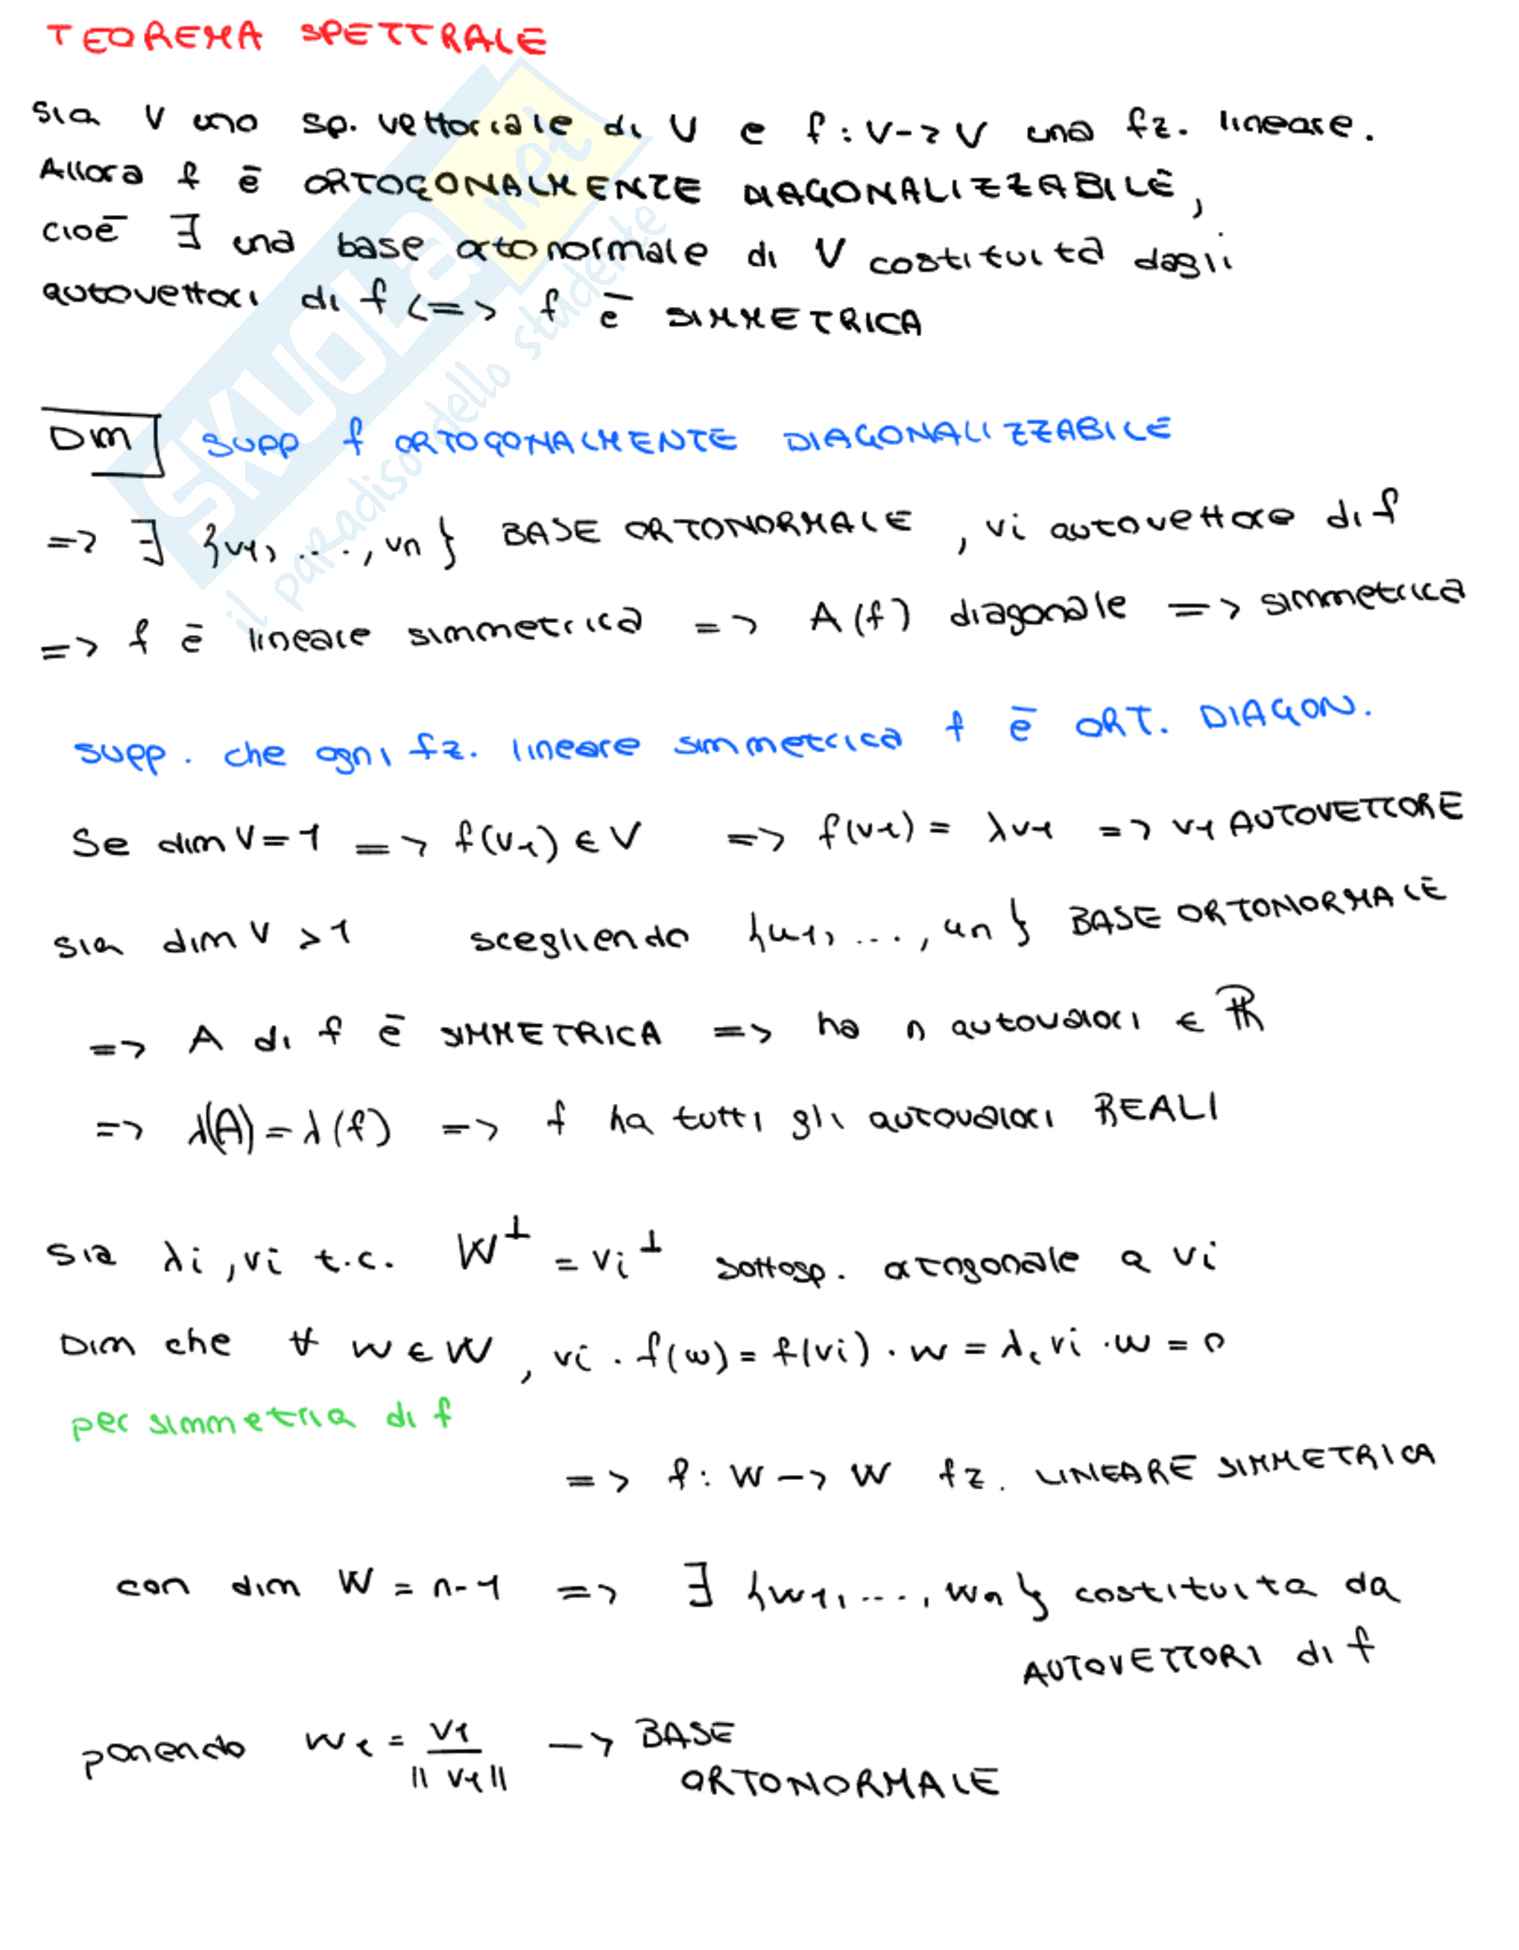 TEOREMA SPETTRALE
Sia V uno sp. vettoriale di V e f : V -> V una fz. lineare.
Allora f è ORTOGONALMENTE DIAGONALIZZABILE,
cioè ∃ una base ortonormale di V costituita dagli
autovettori di f <=> f è SIMMETRICA
DIM SUPP f ORTOGONALMENTE DIAGONALIZZABILE
=> ∃ {v1, ..., vn} BASE ORTONORMALE , vi autovettore di f
=> f è lineare simmetrica => A(f) diagonale => simmetrica
supp. che ogni fz. lineare simmetrica f è ORT. DIAGON.
Se dim V = 1 => f(v1) ∈ V => f(v1) = λv1 => v1 AUTOVETTORE
sia dim V > 1 scegliendo {u1, ..., un} BASE ORTONORMALE
=> A di f è SIMMETRICA => ha n autovalori ∈ ℝ
=> λ(A) = λ(f) => f ha tutti gli autovalori REALI
Sia λi , vi t.c. W⊥ = vi⊥ sottosp. ortogonale a vi
Dim che ∀ w ∈ W , vi · f(w) = f(vi) · w = λi vi · w = 0
per simmetria di f
=> f : W -> W fz. LINEARE SIMMETRICA
con dim W = n-1 => ∃ {w1, ..., wn} costituita da
AUTOVETTORI di f
ponendo w1 = v1 / ||v1|| -> BASE
ORTONORMALE
SKUOLA.net
il paradiso dello studente